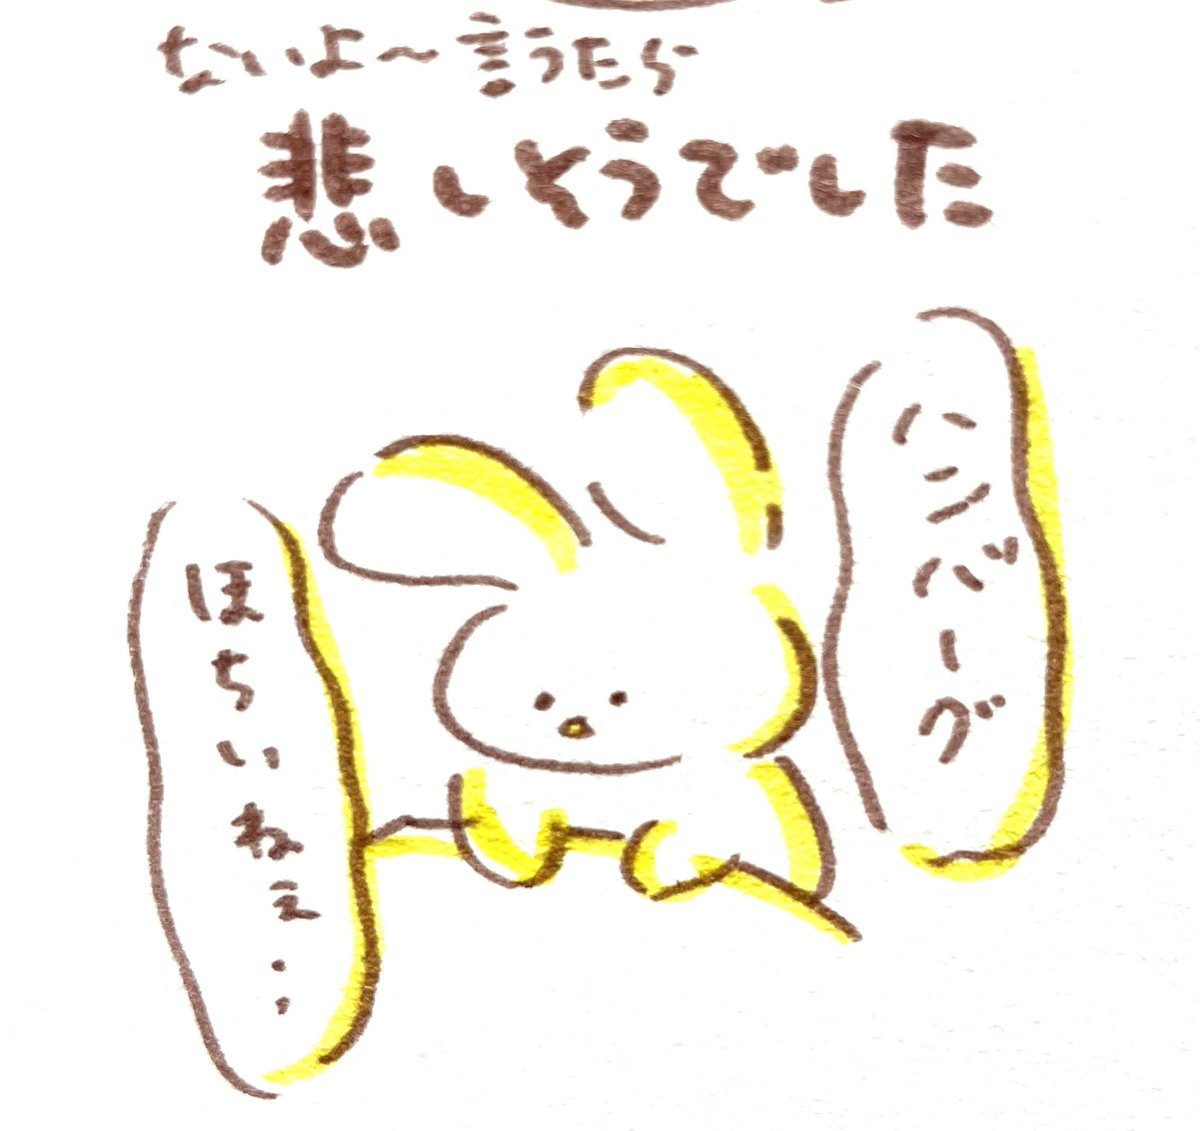 ないよ〜言うたら
悲しそうでした
ハンバーグ
ほちいねえ・・